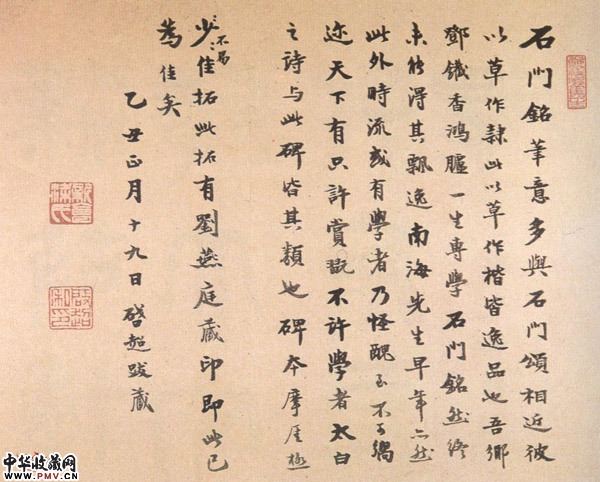 石門銘筆意多與石門頌相近彼
以草作隸此以草作楷皆逸品也吾鄉
鄧鐵香鴻臚一生專學石門銘然終
未能得其飄逸南海先生早年亦然
此外時流或有學者乃怪醜至不可嚮
迩天下有只許賞翫不許學者太白
之詩与此碑皆其類也碑本摩厓極
少佳拓此拓有劉燕庭藏印即此已
不易
為佳矣
乙丑正月十九日啓超跋藏
中华收藏网
www.PMV.CN